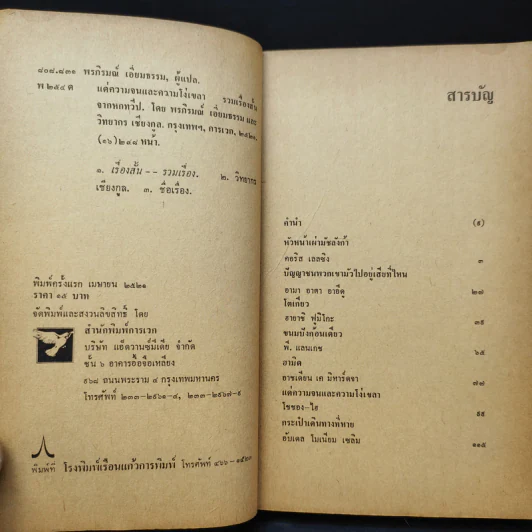 ๘๐๘.๘๓๑ พรภิรมณ์ เอี่ยมธรรม, ผู้แปล.
พ ๒๕๔ ต แด่ความจนและความโง่เขลา รวมเรื่องสั้น
จากหกทวีป. โดย พรภิรมณ์ เอี่ยมธรรม และ
วิทยากร เชียงกูล. กรุงเทพฯ, การเวก, ๒๕๒๑.
(๑๖) ๒๙๘ หน้า.
๑. เรื่องสั้น -- รวมเรื่อง. ๒. วิทยากร
เชียงกูล. ๓. ชื่อเรื่อง.
พิมพ์ครั้งแรก เมษายน ๒๕๒๑
ราคา ๑๕ บาท
จัดพิมพ์และสงวนลิขสิทธิ์ โดย
สำนักพิมพ์การเวก
บริษัท แอ็ดวานซ์มีเดีย จำกัด
ชั้น ๖ อาคารอื้อจือเหลียง
๙๖๘ ถนนพระราม ๔ กรุงเทพมหานคร
โทรศัพท์ ๒๓๓-๒๕๖๑-๔, ๒๓๓-๒๕๖๗-๙
พิมพ์ที่ โรงพิมพ์เรือนแก้วการพิมพ์ โทรศัพท์
สารบัญ
คำนำ (๕)
หัวหน้าเผ่ามัชลังก้า
ดอริส เลสซิง ๓
ปัญญาชนพวกเขามัวไปอยู่เสียที่ไหน
อามา อาตา อายีดู ๒๗
โตเกียว
ฮายาชิ ฟูมิโกะ ๓๕
ขนมปังก้อนเดียว
พี. แลนเกซ ๖๕
ฮามิด
อาชเดียน เค มิทาร์ดจา ๗๗
แด่ความจนและความโง่เขลา
โซซอง-ไฮ ๙๕
กระเป๋าเดินทางที่หาย
อับเดล โมเนียม เซลิม ๑๑๕